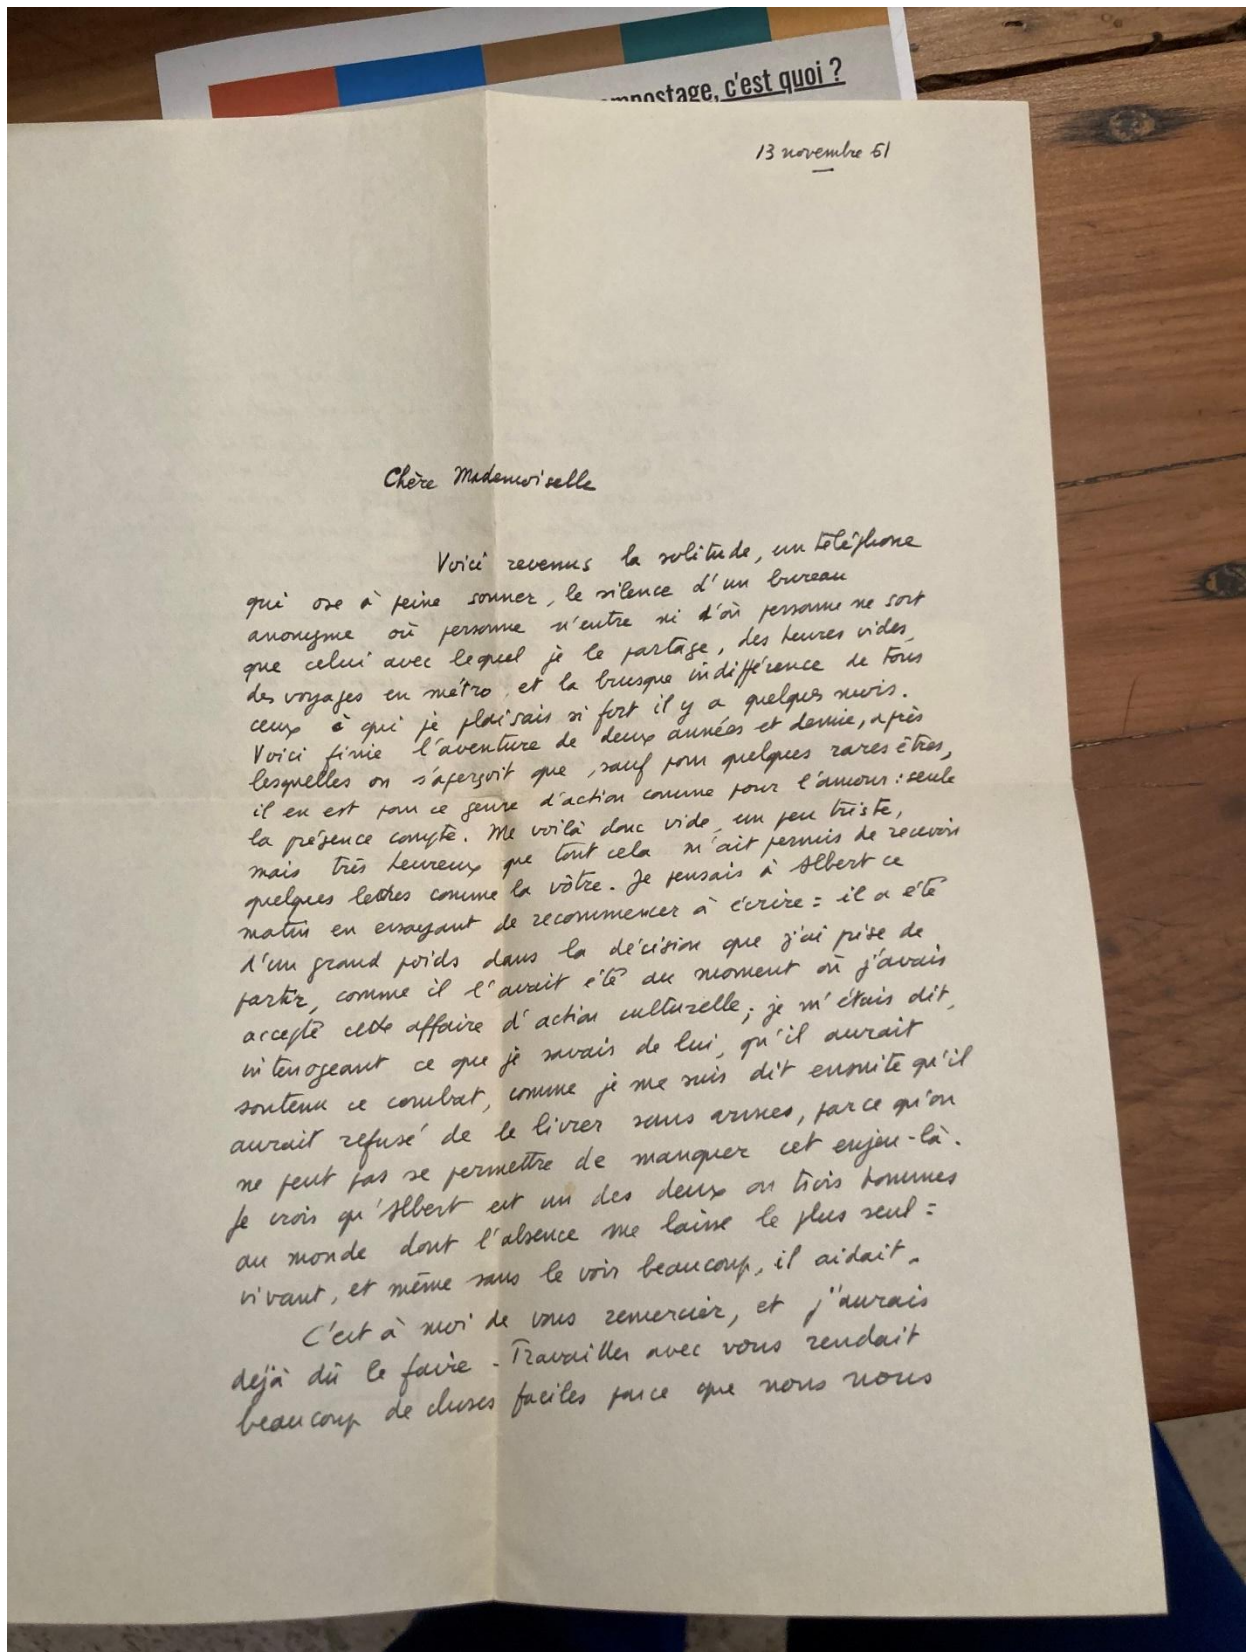 mpostage, c'est quoi ?
13 novembre 61
Chère Mademoiselle
Voici revenus la solitude, un téléphone
qui ose à peine sonner, le silence d'un bureau
anonyme où personne n'entre ni d'où personne ne sort
que celui avec lequel je le partage, des heures vides,
des voyages en métro, et la brusque indifférence de tous
ceux à qui je plaisais si fort il y a quelques mois.
Voici finie l'aventure de deux années et demie, après
lesquelles on s'aperçoit que, sauf pour quelques rares êtres,
il en est pour ce genre d'action comme pour l'amour : seule
la présence compte. Me voilà donc vide, un peu triste,
mais très heureux que tout cela m'ait permis de recevoir
quelques lettres comme la vôtre. Je pensais à Albert ce
matin en essayant de recommencer à écrire : il a été
d'un grand poids dans la décision que j'ai prise de
partir, comme il l'avait été au moment où j'avais
accepté cette affaire d'action culturelle ; je m'étais dit,
interrogeant ce que je savais de lui, qu'il aurait
soutenu ce combat, comme je me suis dit ensuite qu'il
aurait refusé de le livrer sans armes, parce qu'on
ne peut pas se permettre de manquer cet enjeu-là.
Je crois qu'Albert est un des deux ou trois hommes
au monde dont l'absence me laisse le plus seul :
vivant, et même sans le voir beaucoup, il aidait.
C'est à moi de vous remercier, et j'aurais
déjà dû le faire - Travailler avec vous rendait
beaucoup de choses faciles parce que nous nous